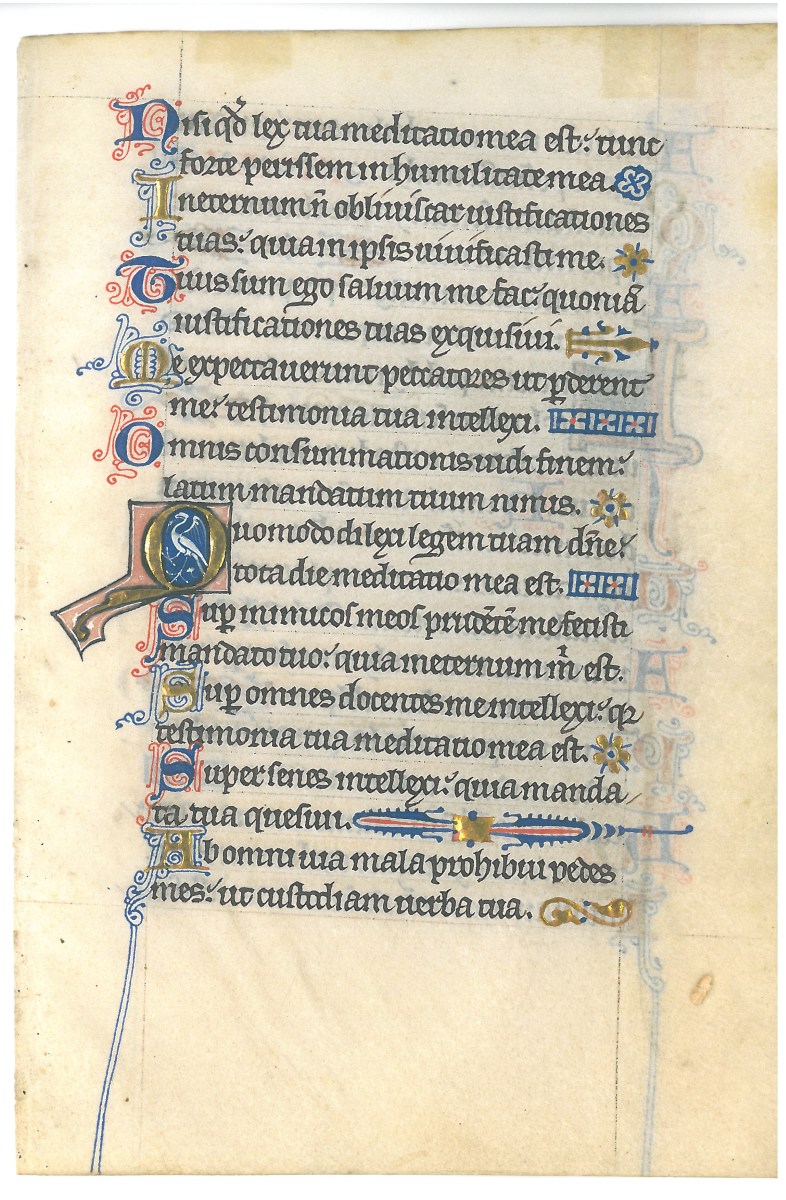 Nisi qđ lex tua meditatio mea est: tunc
forte perissem in humilitate mea.
In eternum ñ obliuiscar iustificationes
tuas: quia in ipsis uiuificasti me.
Tuus sum ego saluum me fac: quoniã
iustificationes tuas exquisiui.
Me expectauerunt peccatores ut ꝑderent
me: testimonia tua intellexi.
Omnis consummationis uidi finem:
latum mandatum tuum nimis.
Quomodo dilexi legem tuam dñe:
tota die meditatio mea est.
Suꝑ inimicos meos prudẽtẽ me fecisti
mandato tuo: quia in eternum m̃ est.
Suꝑ omnes docentes me intellexi: qꝛ
testimonia tua meditatio mea est.
Super senes intellexi: quia manda
ta tua quesiui.
Ab omni uia mala prohibui pedes
meos: ut custodiam uerba tua.